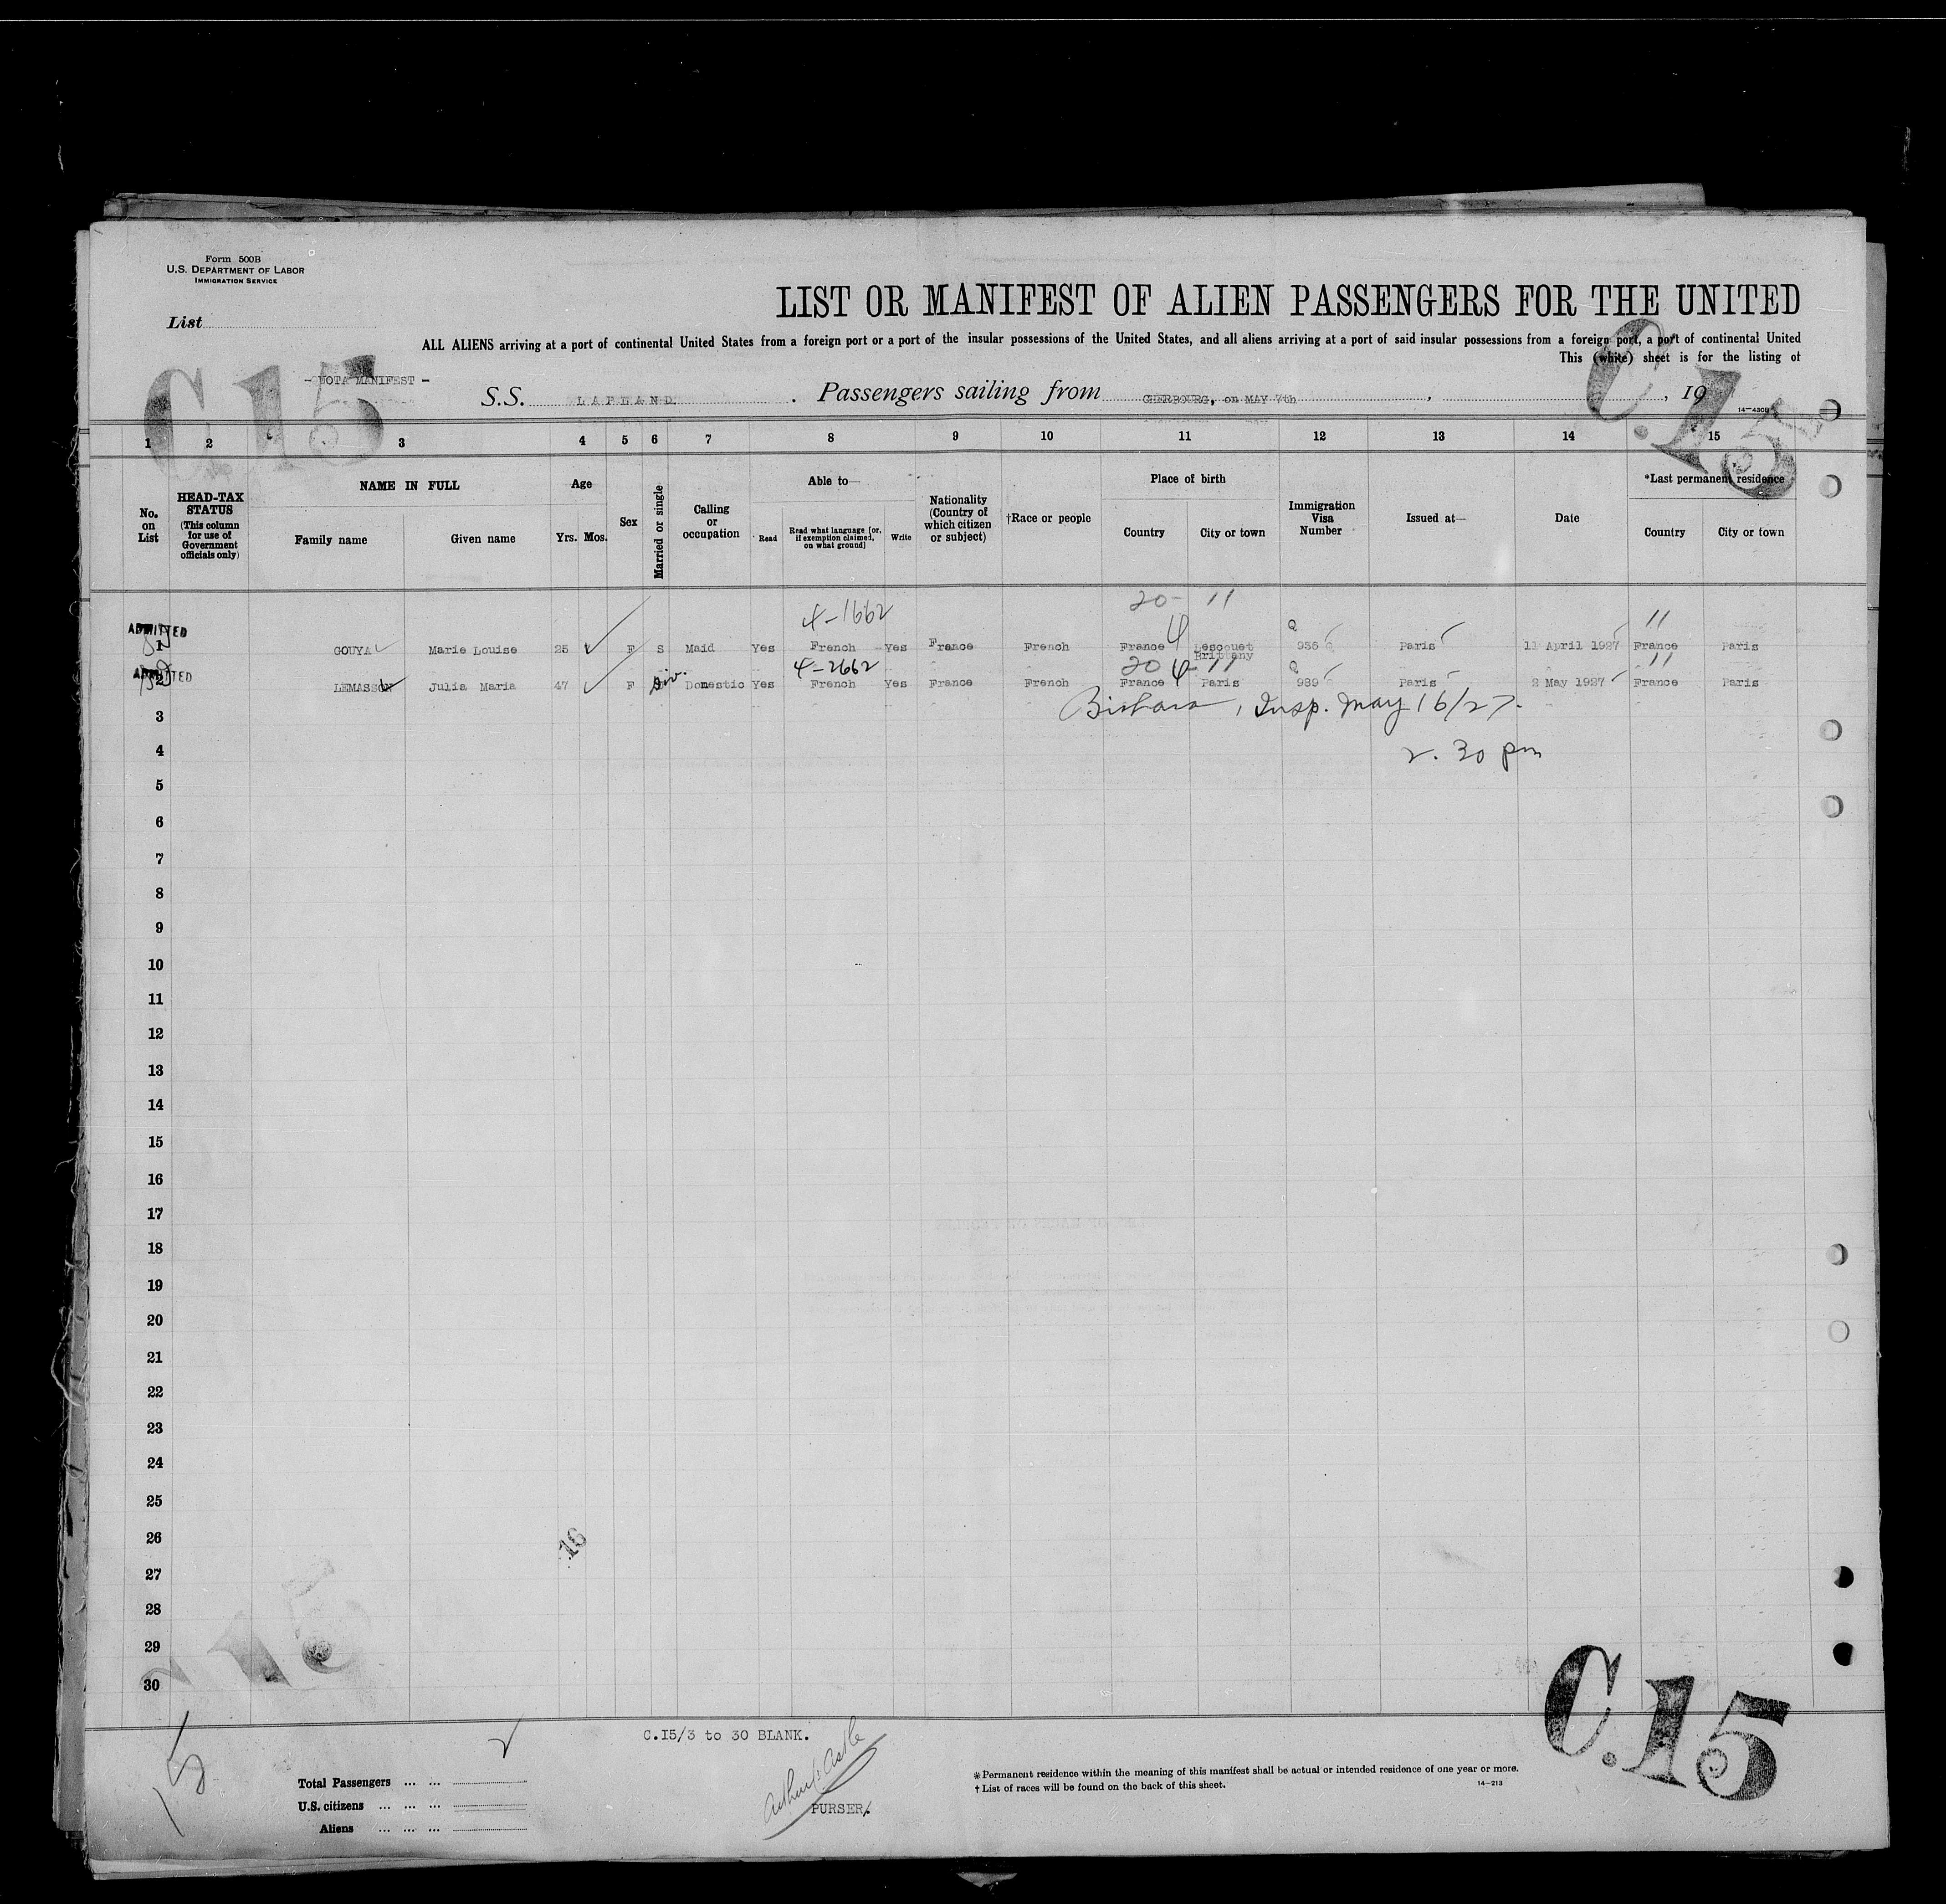 Form 500B
U.S. DEPARTMENT OF LABOR
IMMIGRATION SERVICE
LIST OR MANIFEST OF ALIEN PASSENGERS FOR THE UNITED
List
ALL ALIENS arriving at a port of continental United States from a foreign port or a port of the insular possessions of the United States, and all aliens arriving at a port of said insular possessions from a foreign port, a port of continental United
This (white) sheet is for the listing of
C.15
C.15
MANIFEST -
S.S. LAPLAND. Passengers sailing from CHERBOURG, on MAY 7th , , 19
14-430B
1 2 3 4 5 6 7 8 9 10 11 12 13 14 15
No. on List
HEAD-TAX STATUS (This column for use of Government officials only)
NAME IN FULL
Family name Given name
Age
Yrs. Mos.
Sex
Married or single
Calling or occupation
Able to—
Read Read what language [or, if exemption claimed, on what ground] Write
Nationality (Country of which citizen or subject)
†Race or people
Place of birth
Country City or town
Immigration Visa Number
Issued at—
Date
*Last permanent residence
Country City or town
4-1662 20- 11 11
ADMITTED
1 GOUYA Marie Louise 25 F S Maid Yes French Yes France French France 4 Lescouet Brittany Q 936 Paris 11 April 1927 France Paris
4-2662 20 4-11 11
ADMITTED
2 LEMASSON Julia Maria 47 F Div. Domestic Yes French Yes France French France Paris Q 989 Paris 2 May 1927 France Paris
3 , Insp. May 16/27.
4 2.30 pm
5
6
7
8
9
10
11
12
13
14
15
16
17
18
19
20
21
22
23
24
25
26 16
27
28
29
30
C.15
C.I5/3 to 30 BLANK.
15
Total Passengers ... ...
U.S. citizens ... ... ...
Aliens ... ... ...
PURSER.
* Permanent residence within the meaning of this manifest shall be actual or intended residence of one year or more.
† List of races will be found on the back of this sheet.
14-213